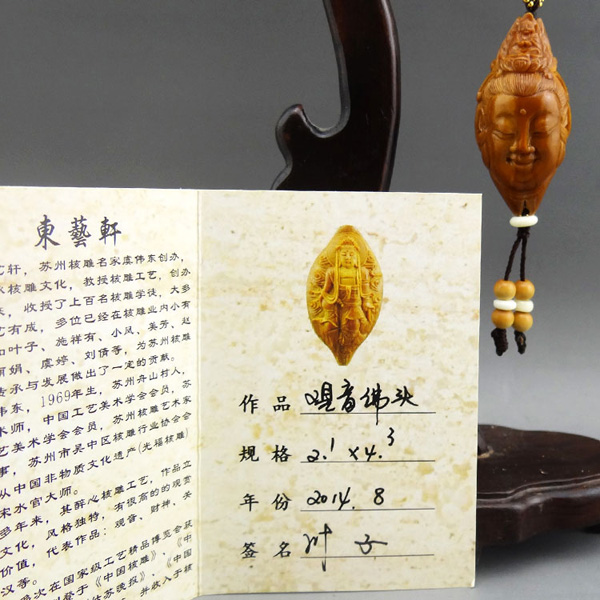 東藝軒
艺轩，苏州核雕名家虞伟东创办，
核雕文化，教授核雕工艺，创办
，收授了上百名核雕学徒，大多
艺有成，多位已经在核雕业内小有
如叶子、施祥有、小凤、美芳、赵
丽娟、虞婷、刘倩等，为苏州核雕
传承与发展做出了一定的贡献。
伟东，1969年生，苏州舟山村人，
术师，中国工艺美术学会会员，苏
艺美术学会会员，苏州核雕艺术家
事，苏州市吴中区核雕行业协会会
从中国非物质文化遗产(光福核雕)
宋水官大师。
多年来，其醉心核雕工艺，作品立
文化，风格独特，有很高的的观赏
价值，代表作品：观音、财神、关
汉等。
次在国家级工艺精品博览会获
登于《中国核雕》、《中国
《姑苏晚报》、
并收入于核
作品 观音佛头
规格 2.1×4.3
年份 2014.8
签名 叶子